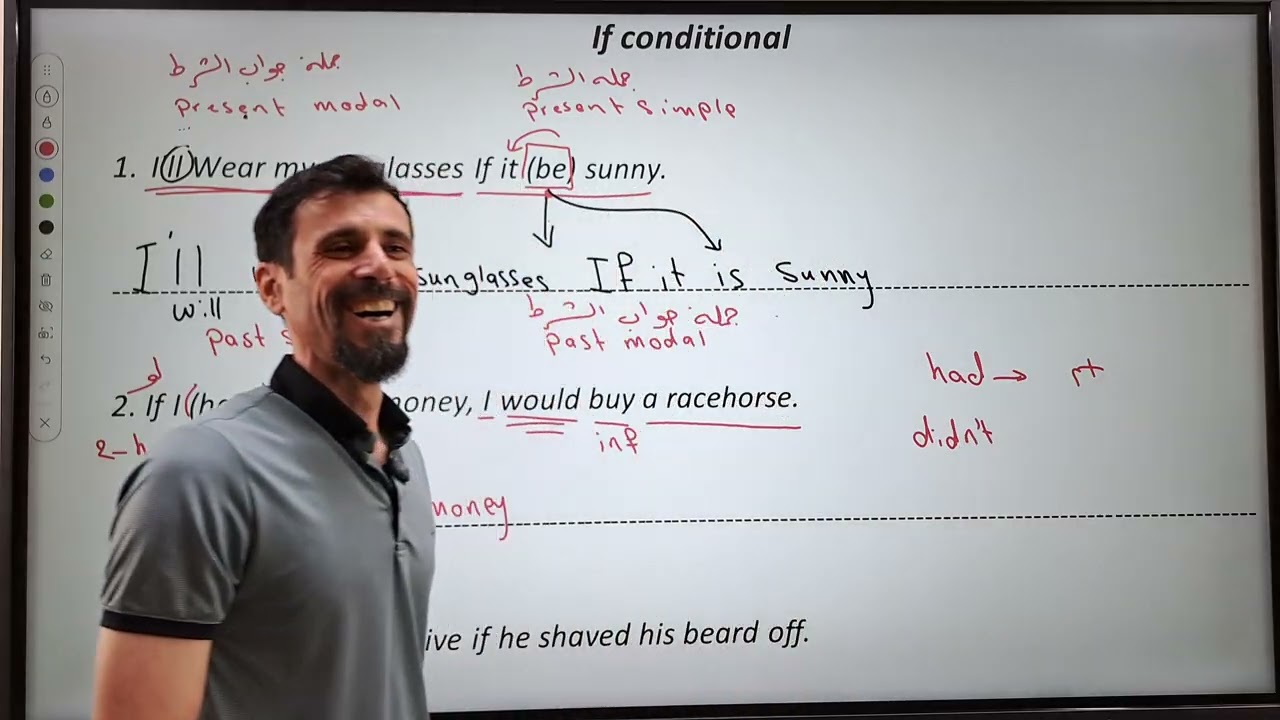 If conditional
جملة جواب الشرط
جملة الشرط
present modal
present simple
1. I'll Wear my lasses If it (be) sunny.
I'll sunglasses If it is Sunny
will
جملة جواب الشرط
past s
past modal
لو
had →
2. If I (ha oney, I would buy a racehorse.
didn't
inf
money
ive if he shaved his beard off.